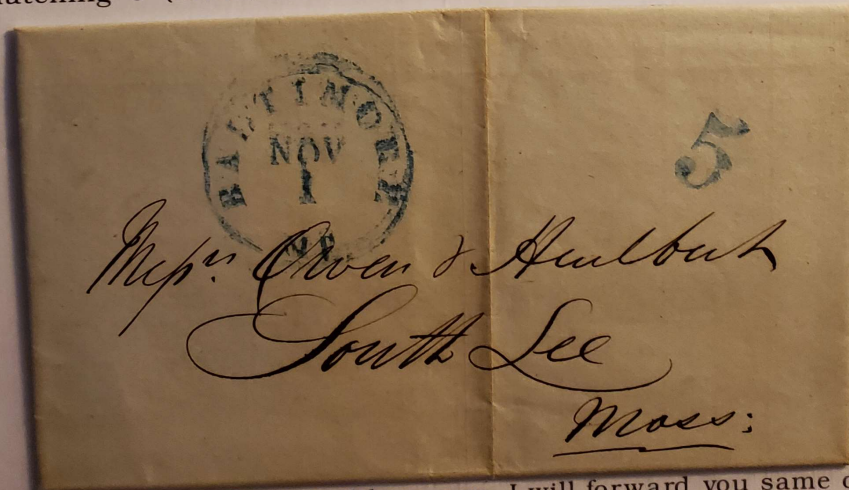 BALTIMORE
NOV
1
MD
5
Messrs. Owen & Hurlbut
South Lee
Mass:
I will forward you same